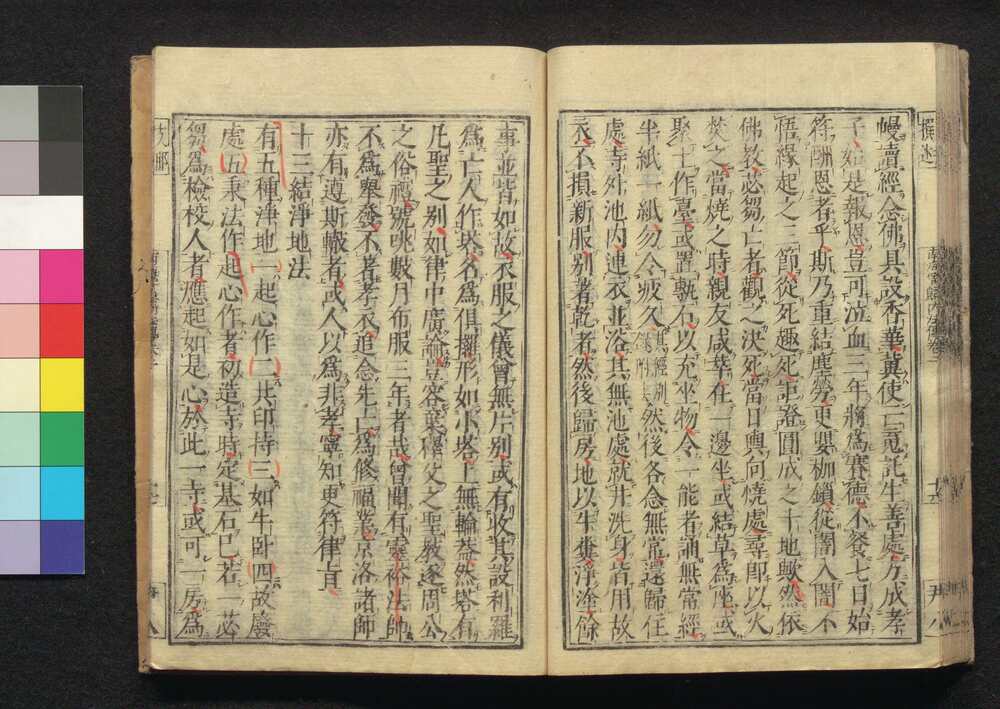 幔讀經念佛具設香華冀使亡䰟託生善處方成孝
子始是報恩豈可泣血三年將為賽德不餐七日始
符酬恩者乎斯乃重結塵勞更嬰枷鎖從闇入闇不
悟緣起之三節從死趣死詎證圓成之十地歟然依
佛教苾芻亡者觀知決死當日輿向燒處尋即以火
焚之當燒之時親友咸萃在一邊坐或結草為座或
聚土作臺或置甎石以充坐物令一能者誦無常經
半紙一紙勿令疲久然後各念無常還歸住
處寺外池內連衣並浴其無池處就井洗身皆用故
衣不損新服別著乾者然後歸房地以牛糞淨塗餘
事並皆如故衣服之儀曾無片別或有收其設利羅
為亡人作塔名為俱攞形如小塔上無輪蓋然塔有
凡聖之別如律中廣論豈容棄釋父之聖教逐周公
之俗禮號咷數月布服三年者哉曾聞有靈裕法師
不為舉發不著孝衣追念先亡為修福業京洛諸師
亦有遵斯轍者或人以為非孝寧知更符律旨
十三結淨地法
有五種淨地一起心作二共印持三如牛臥四故廢
處五秉法作起心作者初造寺時定基石已若一苾
芻為檢校人者應起如是心於此一寺或可一房為